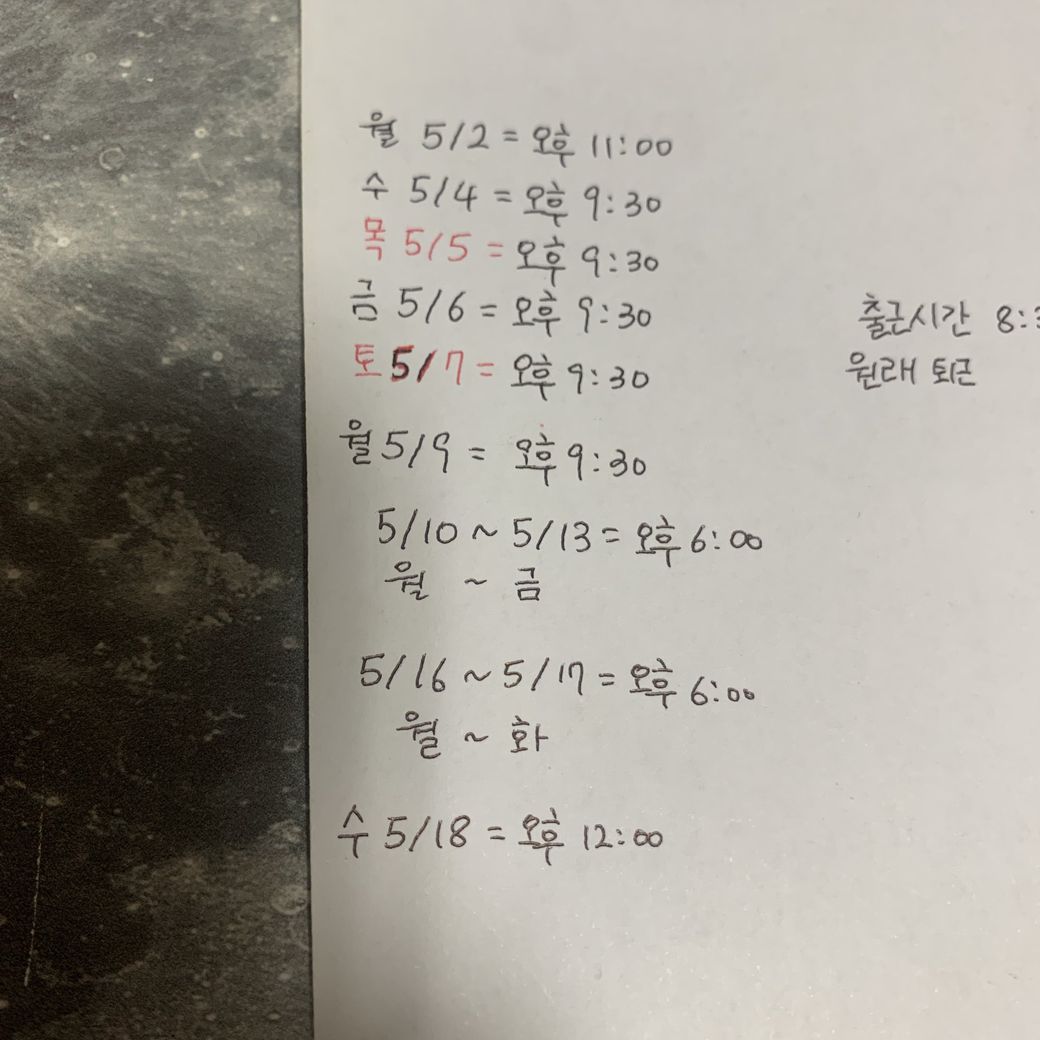 월 5/2 = 오후 11:00
수 5/4 = 오후 9:30
목 5/5 = 오후 9:30
금 5/6 = 오후 9:30
출근시간 8:3
토 5/7 = 오후 9:30
원래 퇴근
월 5/9 = 오후 9:30
5/10 ~ 5/13 = 오후 6:00
월 ~ 금
5/16 ~ 5/17 = 오후 6:00
월 ~ 화
수 5/18 = 오후 12:00